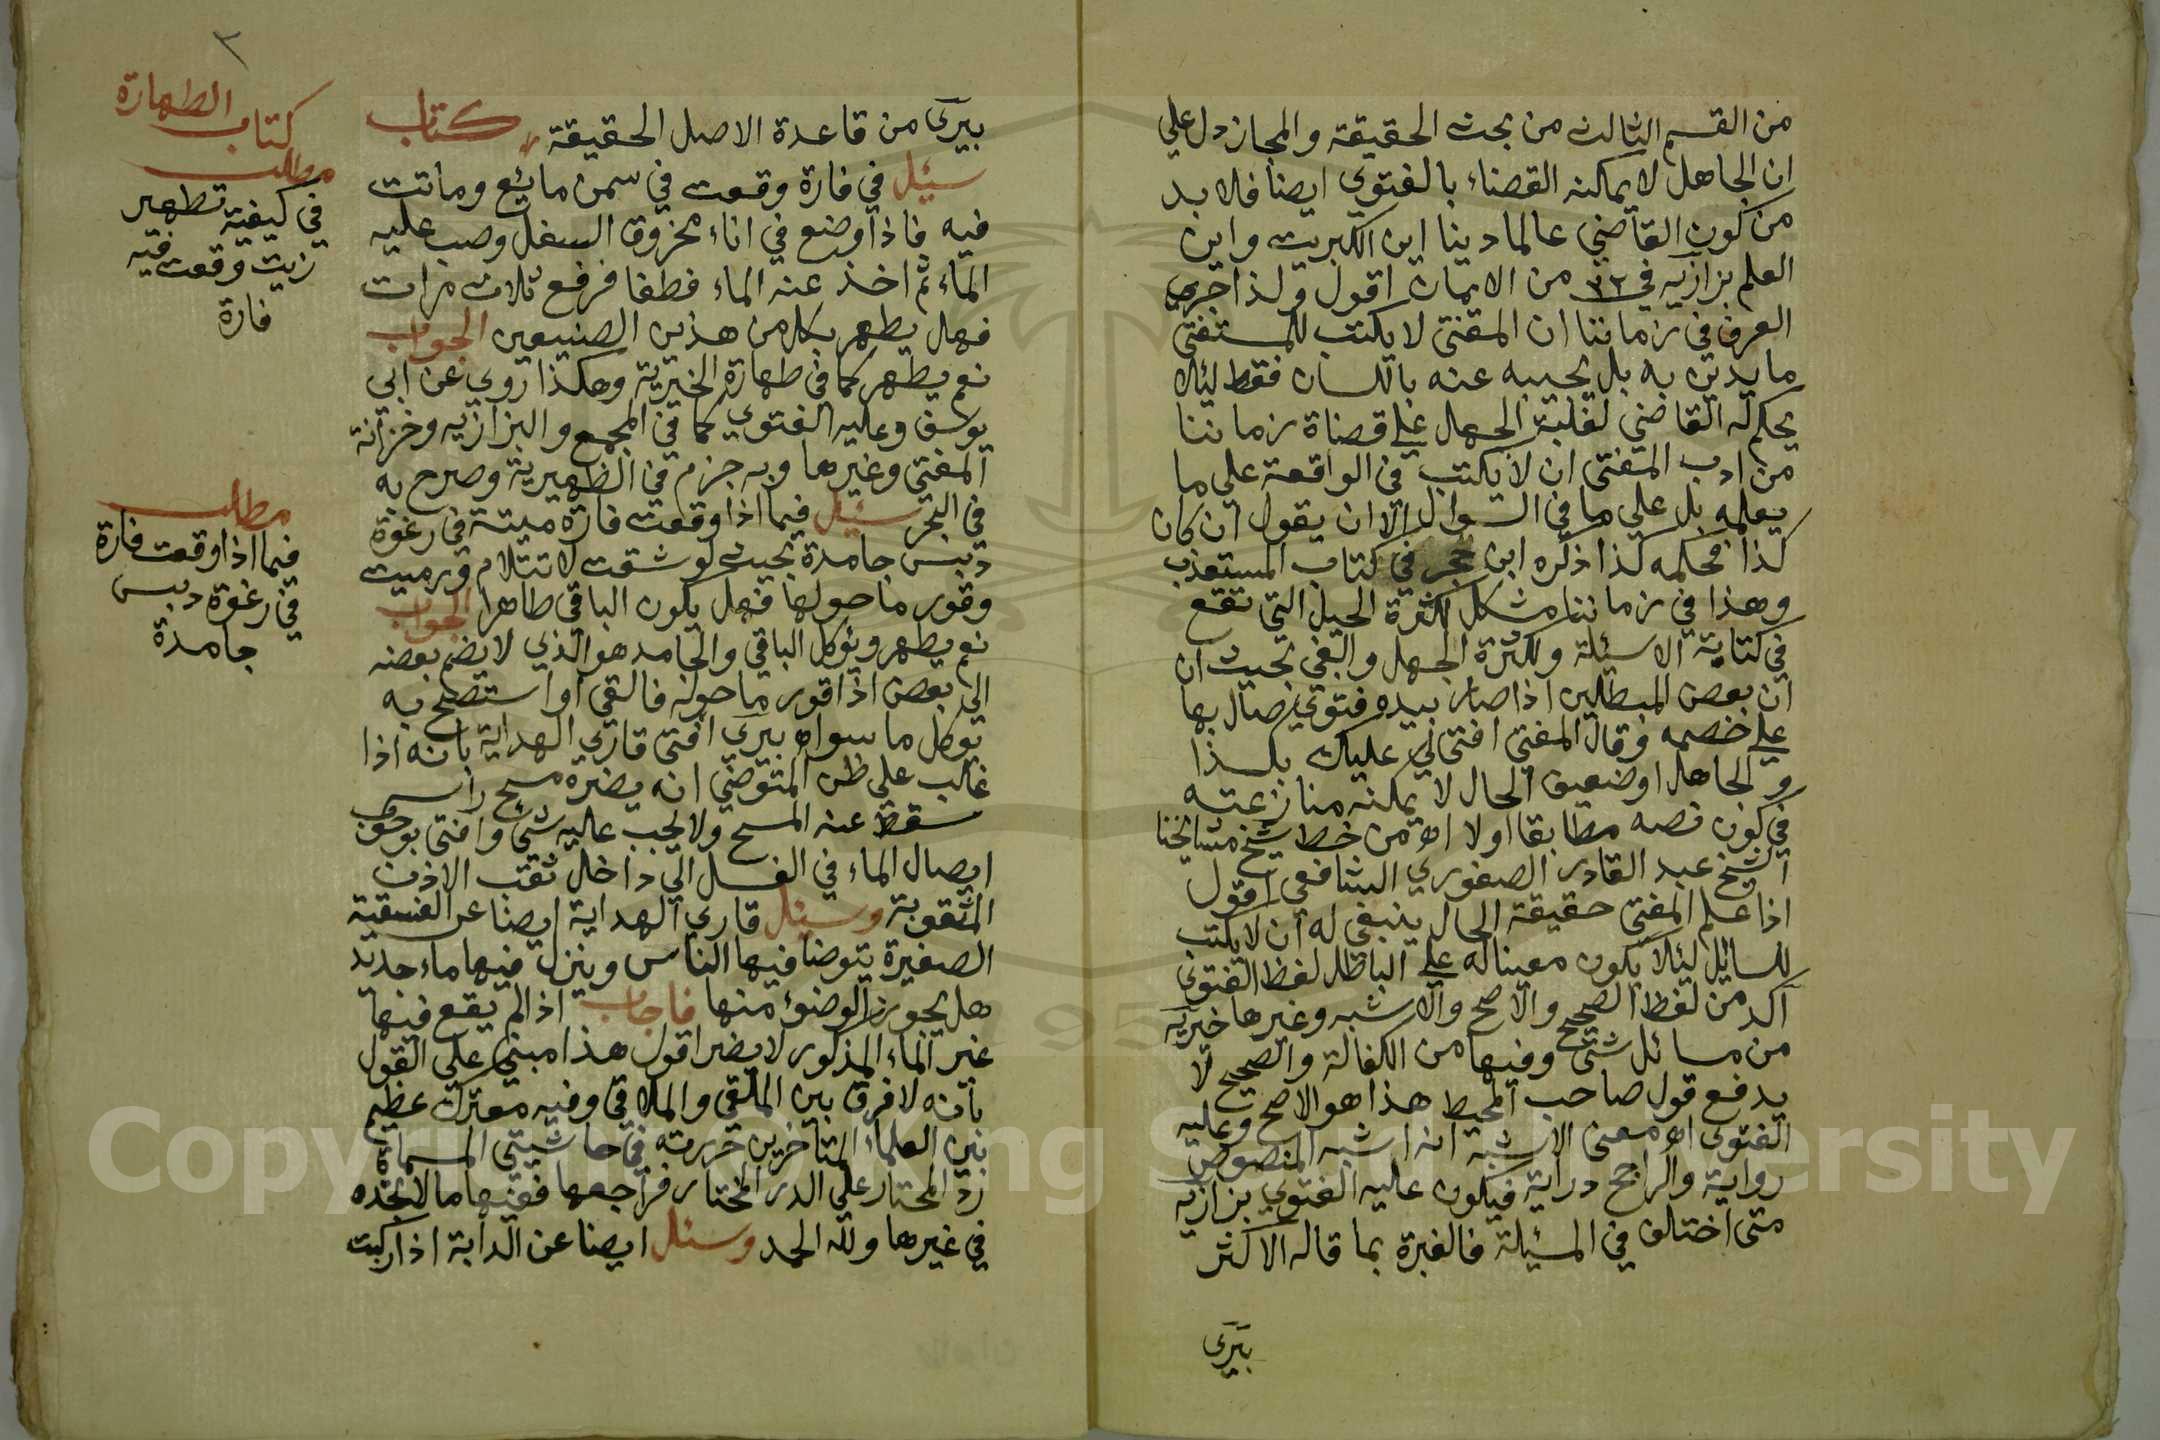 من القسم الثالث من بحث الحقيقة والمجاز دل علي
ان الجاهل لا يمكنه القضاء بالفتوي ايضا فلا بد
من كون القاضي عالما دينا اين الكبريت واين
العلم بزازيه في ٢٢ من الايمان اقول ولذا جري
العرف في زماننا ان المفتي لا يكتب للمستفتي
ما يدين به بل يجيبه عنه باللسان فقط ليلا
يحكم له القاضي لغلبة الجهل علي قضاة زماننا
من ادب المفتي ان لا يكتب في الواقعة علي ما
يعلمه بل علي ما في السوال الا ان يقول ان كان
كذا فحكمه كذا ذكره ابن حجر في كتاب المستعذب
وهذا في زماننا مشكل لكثرة الحيل التي تقع
في كتابة الاسئلة ولكثرة الجهل والبغي بحيث ان
ان بعض المبطلين اذا صار بيده فتوي صال بها
علي خصمه وقال المفتي افتي لي عليك بكذا
والجاهل اوضعيف الحال لا يمكنه منازعته
في كون نصه مطابقا اولا اه من خط شيخ مشايخنا
الشيخ عبد القادر الصفوري الشافعي اقول
اذا علم المفتي حقيقة الحال ينبغي له ان لا يكتب
للسائل ليلا يكون معينا له علي الباطل لفظ الفتوي
اكد من لفظ الصحيح والاصح والاشبه وغيرها خيريه
من مسائل شتي وفيها من الكفالة والصحيح لا
يدفع قول صاحب المحيط هذا هو الاصح وعليه
الفتوي اه معني الاشبه انه اشبه المنصوص
رواية والراجح دراية فيكون عليه الفتوي بزازيه
متي اختلف في المسئلة فالعبرة بما قاله الاكثر
بيري
٣
بيري من قاعدة الاصل الحقيقة كتاب
سئل في فارة وقعت في سمن مائع وماتت
فيه فاذا وضع في اناء مخزوق السفل وصب عليه
الماء ثم اخذ عنه الماء فطفا فرفع ثلاث مرات
فهل يطهر بكل من هذين الصنيعين الجواب
نعم يطهر كما في طهارة الخيرية وهكذا روي عن ابي
يوسف وعليه الفتوي كما في المجمع والبزازيه وخزانة
المفتي وغيرها وبه جزم في الظهيرية وصرح به
في البحر سئل فيما اذا وقعت فارة ميتة في رغوة
دبس جامدة بحيث لو شقت لا تتلام ورميت
وقور ما حولها فهل يكون الباقي طاهرا الجواب
نعم يطهر ويوكل الباقي والجامد هو الذي لا يضم بعضه
الي بعض اذا قور ما حوله فالقي او استصبح به
يوكل ما سواه بيري افتي قاري الهداية بانه اذا
غلب علي ظن المتوضي انه يضره مسح راسه
سقط عنه المسح ولا يجب عليه شئ وافتي بوجوب
ايصال الماء في الغسل الي داخل ثقب الاذن
المثقوبة وسئل قاري الهداية ايضا عن الفسقية
الصغيرة يتوضا فيها الناس وينزل فيها ماء جديد
هل يجوز الوضوء منها فاجاب اذا لم يقع فيها
غير الماء المذكور لا يضر اقول هذا مبني علي القول
بانه لا فرق بين الملقي والملاقي وفيه معترك عظيم
بين العلماء المتاخرين حررته في حاشيتي المسماة
رد المحتار علي الدر المختار فراجعها ففيها ما لا تجده
في غيرها ولله الحمد وسئل ايضا عن الدابة اذا ركبت
كتاب الطهارة
مطلب
في كيفية تطهير
زيت وقعت فيه
فارة
مطلب
فيما اذا وقعت فارة
في رغوة دبس
جامدة